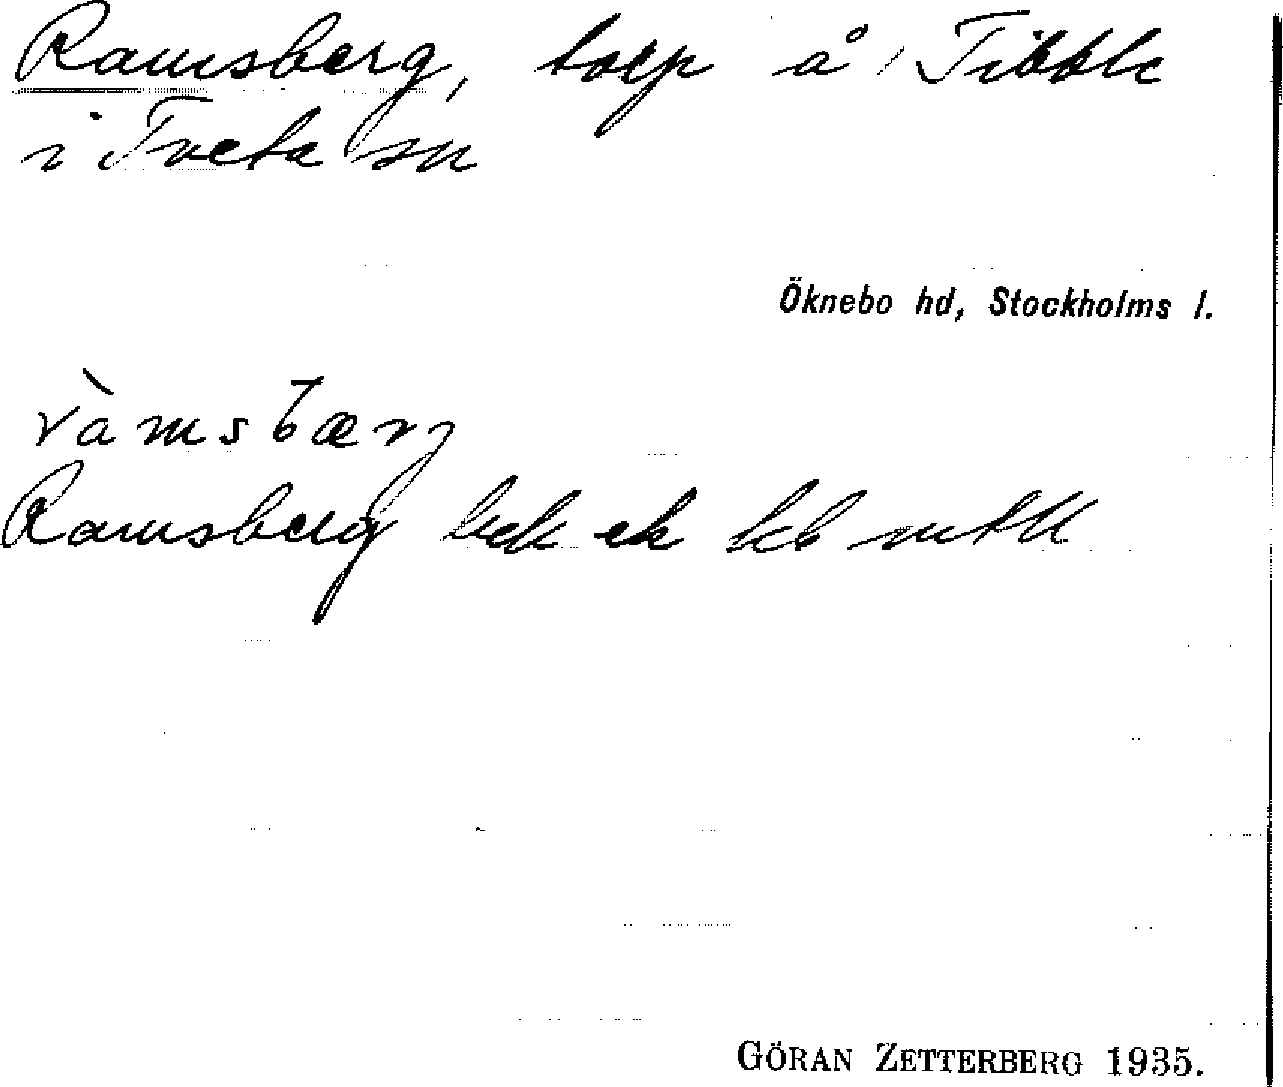 Ramsberg, torp å Tibble
i Tveta sn
Öknebo hd, Stockholms l.
ràmsbærj
Ramsberg bek ek
GÖRAN ZETTERBERG 1935.